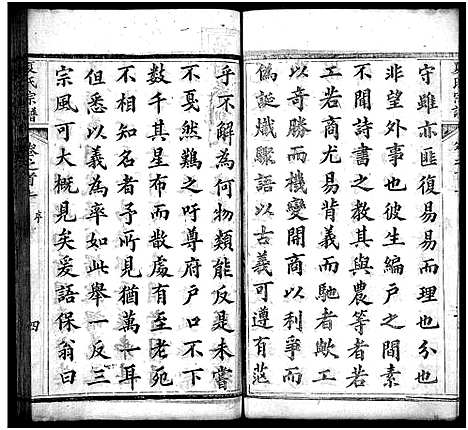 守雖亦匪復易易而理也分也
非望外事也彼生編戶之間素
不聞詩書之教其與農等者若
工若商尤易背義而馳者歟工
以奇勝而機變開商以利爭而
偽誕熾驟語以古義可遵有范
乎不解為何物類能反是未嘗
不戞然難之吁尊府戶口不下
數千其星布而散處有至老死
不相知名者予所見猶萬一耳
但悉以義為率如此舉一反三
宗風可大概見矣爰語保翁曰
夏氏宗譜
序
四